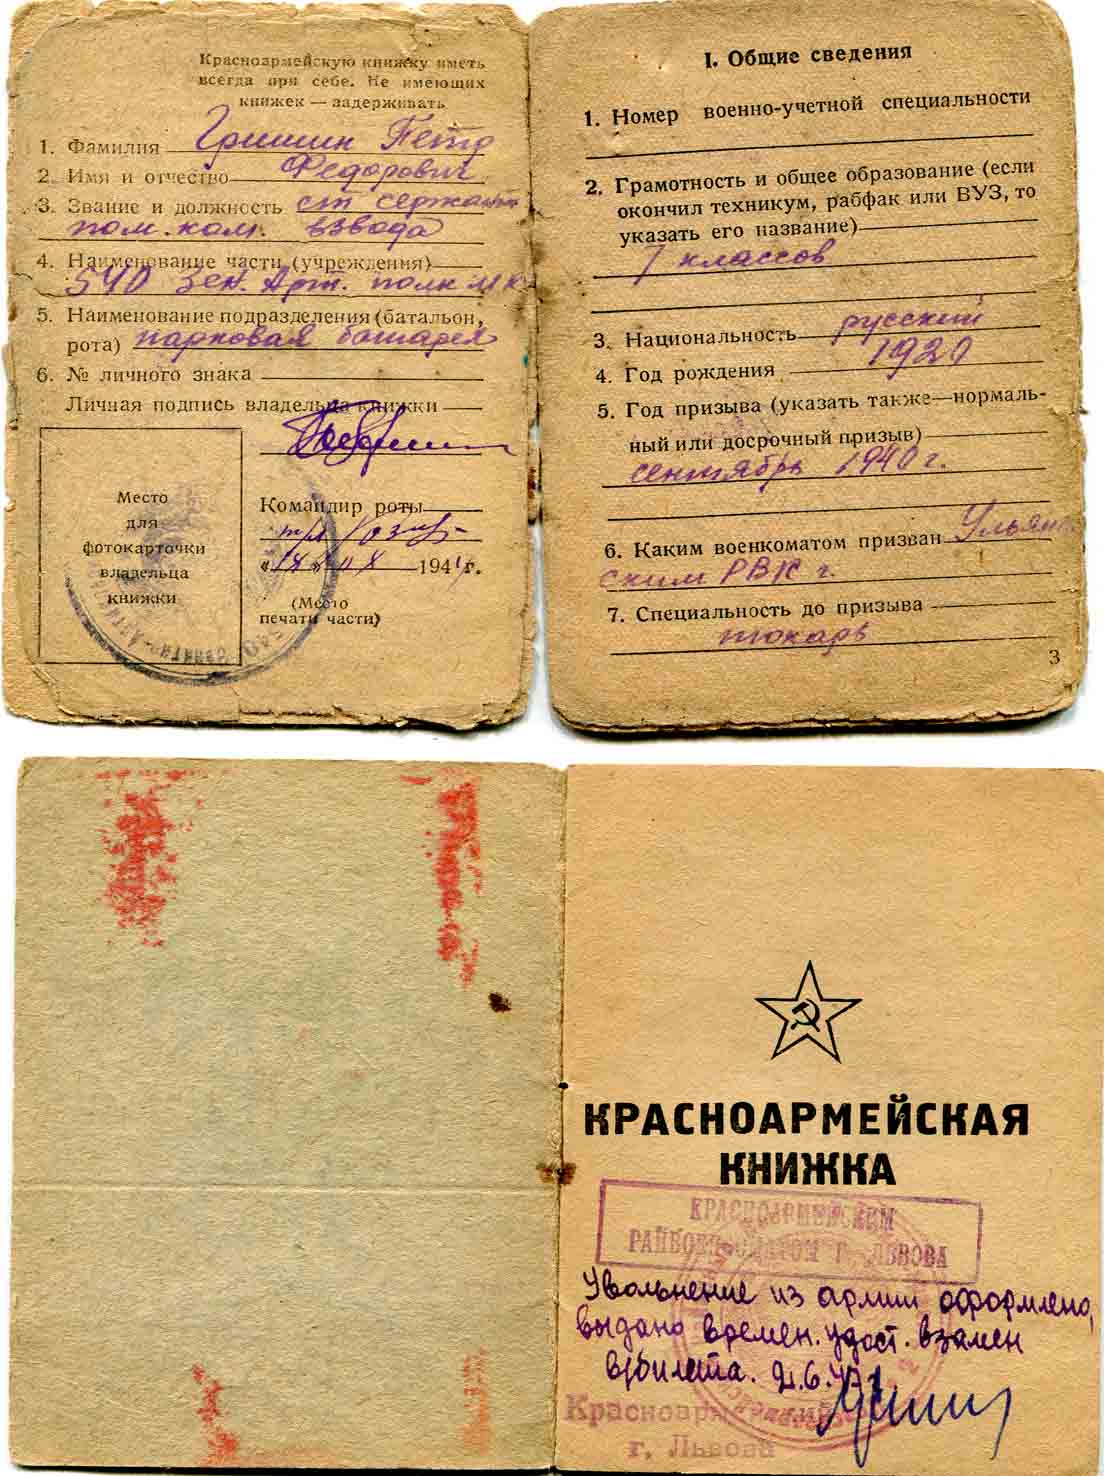 Красноармейскую книжку иметь
всегда при себе. Не имеющих
книжек — задерживать
1. Фамилия Гришин Петр
2. Имя и отчество Федорович
3. Звание и должность ст сержант
пом. ком. взвода
4. Наименование части (учреждения)
540 Зен. Арт. полк МК
5. Наименование подразделения (батальон,
рота) парковая батарея
6. № личного знака
Личная подпись владельца книжки
Место
для
фотокарточки
владельца
книжки
Командир роты
194 г.
(Место
печати части)
I. Общие сведения
1. Номер военно-учетной специальности
2. Грамотность и общее образование (если
окончил техникум, рабфак или ВУЗ, то
указать его название)
7 классов
3. Национальность русский
4. Год рождения 1920
5. Год призыва (указать также—нормаль-
ный или досрочный призыв)
сентябрь 1940 г.
6. Каким военкоматом призван Ульян
ским РВК г.
7. Специальность до призыва
токарь
3
КРАСНОАРМЕЙСКАЯ
КНИЖКА
КРАСНОАРМЕЙСКИМ
РАЙВОЕНКОМАТОМ Г. ЛЬВОВА
Увольнение из армии оформлено,
выдано времен. удост. взамен
в/билета. 6.47
Красноармейский
г. Львова